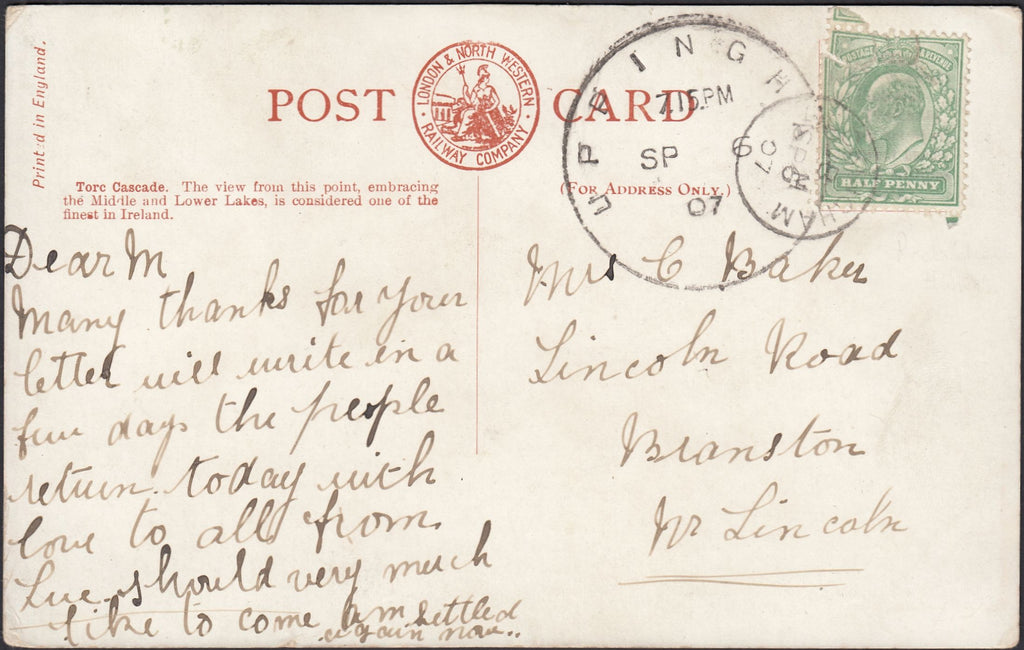 Printed in England.
POST CARD
LONDON & NORTH WESTERN
RAILWAY COMPANY
Torc Cascade. The view from this point, embracing
the Middle and Lower Lakes, is considered one of the
finest in Ireland.
(For Address Only.)
UPPINGHAM
7.15.PM
SP 6
07
POSTAGE & REVENUE
HALF PENNY
Dear M
Many thanks for your
letter will write in a
few days the people
return today with
love to all from
Lue should very much
like to come am settled
again now..
Mrs C Baker
Lincoln Road
Branston
Nr Lincoln